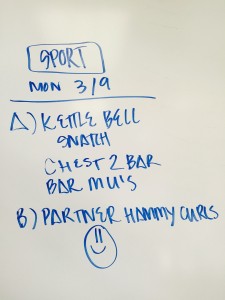 SPORT
MON 3/9
A) KETTLE BELL
SNATCH
CHEST 2 BAR
BAR MU'S
B) PARTNER HAMMY CURLS